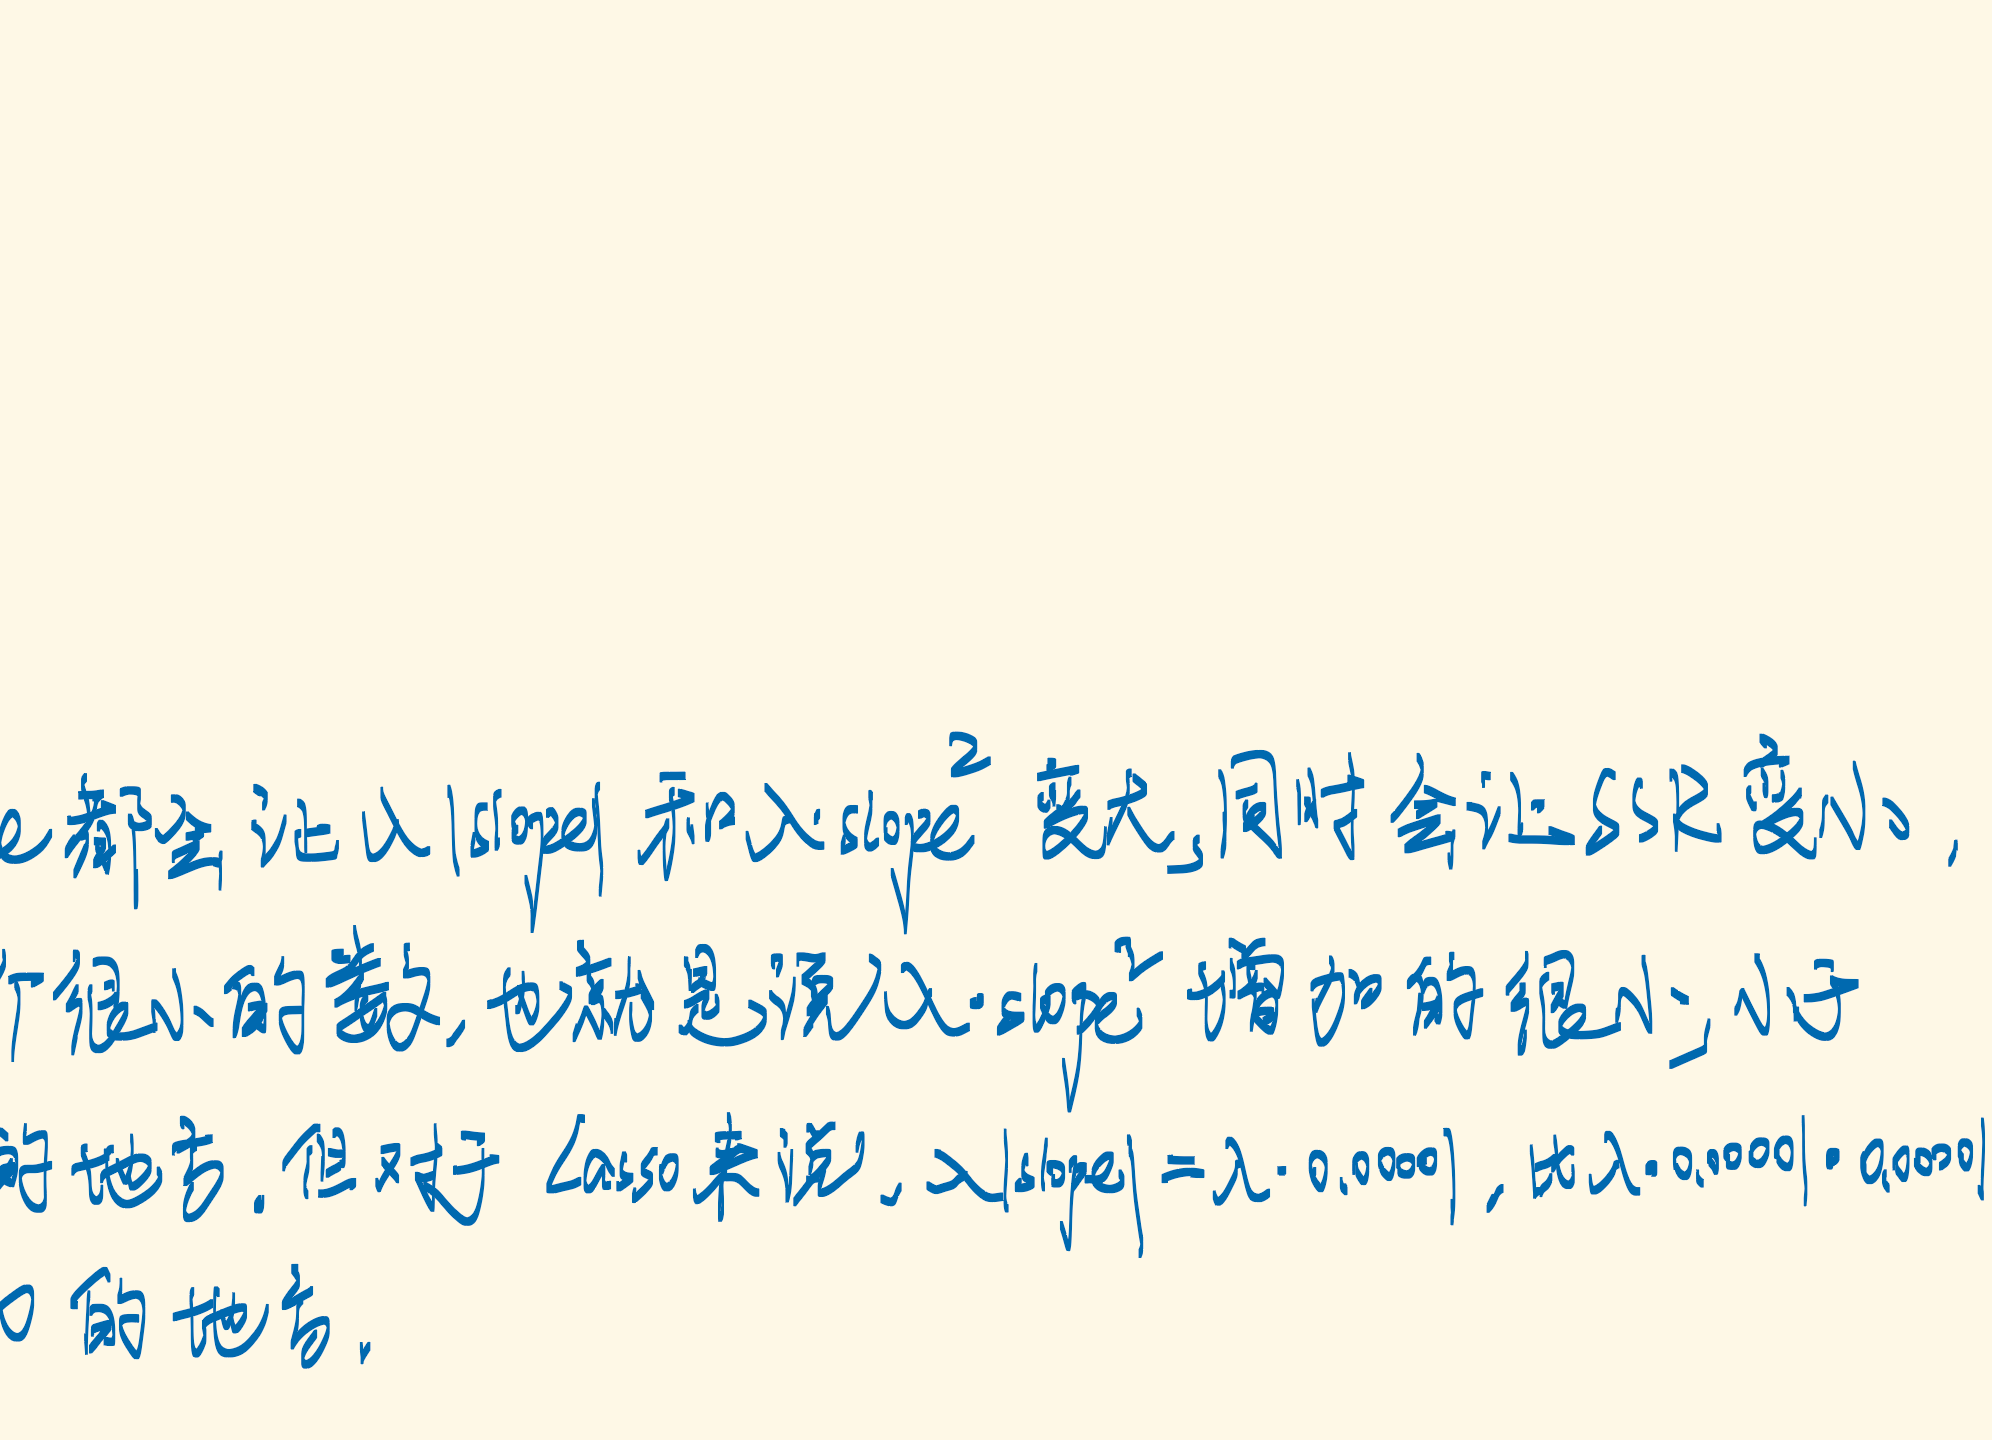 e都会让λ|slope|和λ·slope²变大,同时会让SSR变小,
个很小的数,也就是说λ·slope²增加的很小,小于
的地方.但对于Lasso来说,λ|slope|=λ·0.00001,比λ·0.00001·0.00001
0的地方.